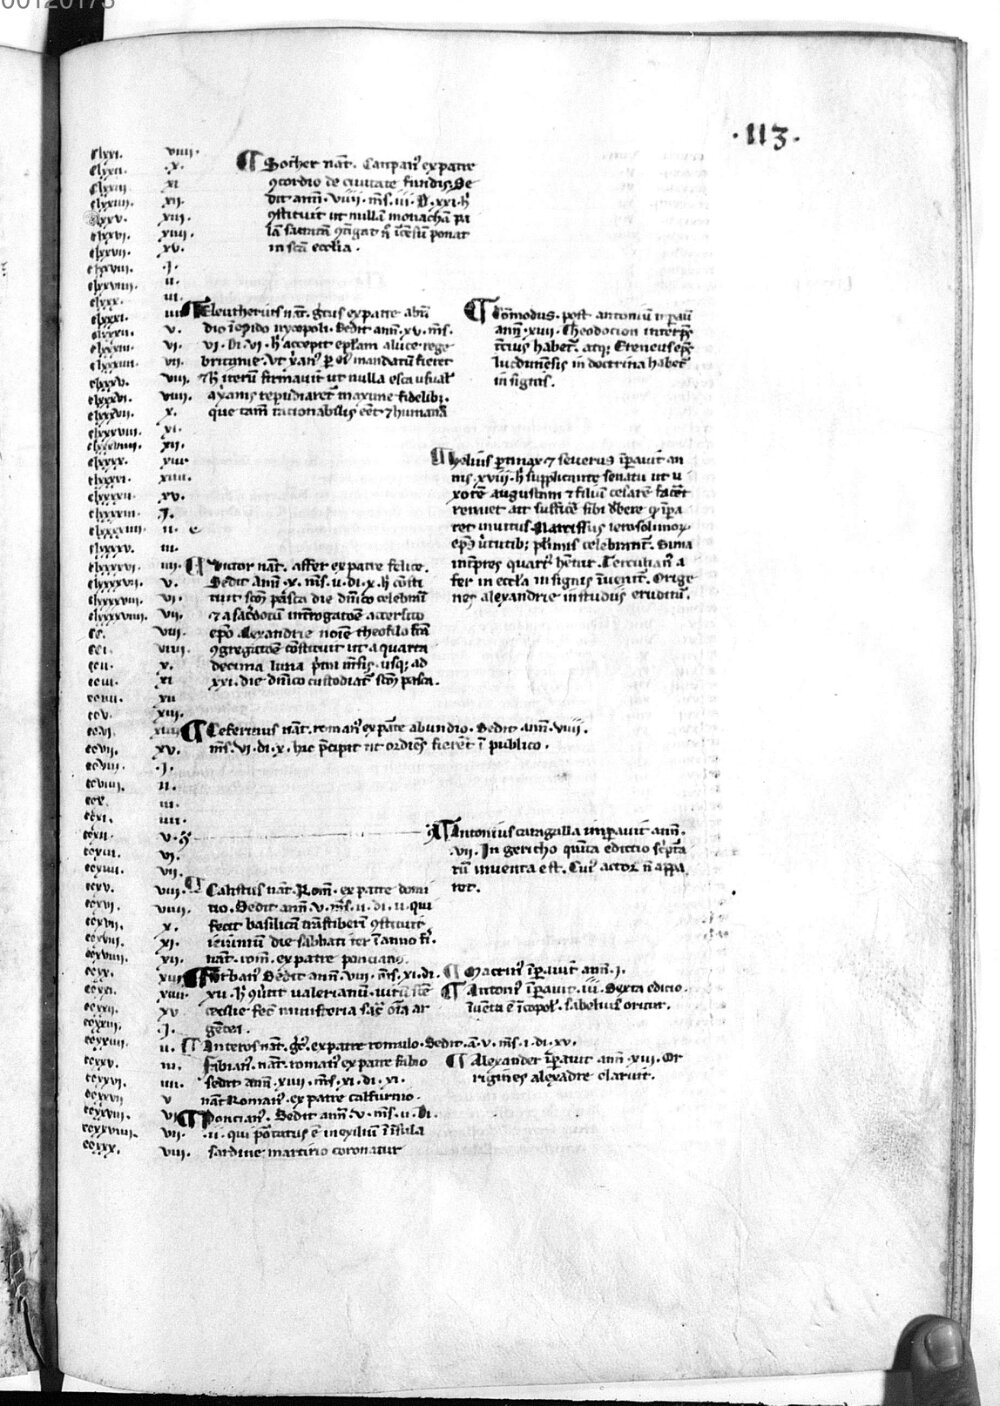 00120173
·113·
clxxi. viiii.
clxxii. .x.
clxxiii xi
clxxiiii. xii.
clxxv. xiii.
clxxvi. xiiii.
clxxvii. xv.
clxxviii. .j.
clxxviiii. ii.
clxxx. iii.
clxxxi. iiii
clxxxii. v.
clxxxiii. vi.
clxxxiiii. vii.
clxxxv. viii.
clxxxvi. viiii.
clxxxvii. x.
clxxxviii. xi.
clxxxviiii. xii.
clxxxx. xiii
clxxxxi. xiiii.
clxxxxii. xv.
clxxxxiii. .j.
clxxxxiiii. ii. e
clxxxxv. iii.
clxxxxvi. iiii.
clxxxxvii. v.
clxxxxviii. vi.
clxxxxviiii. vii.
cc. viii.
cci. viiii.
ccii. x.
cciii. xi
cciiii. xii
ccv. xiii.
ccvi. xiiii
ccvii. xv.
ccviii. .j.
ccviiii. ii.
ccx. iii.
ccxi. iiii.
ccxii. v.
ccxiii. vi.
ccxiiii. vii.
ccxv. viii.
ccxvi. viiii.
ccxvii. x.
ccxviii. xi.
ccxviiii. xii.
ccxx. xiii
ccxxi. xiiii.
ccxxii. xv
ccxxiii. .j.
ccxxiiii. ii.
ccxxv. iii.
ccxxvi. iiii.
ccxxvii v
ccxxviii. vi
ccxxviiii. vii.
ccxxx. viii.
¶ Sother nat̄. Canpan᷒ ex patre
ꝯcordio de ciuitate fundis. Se
dit ann̄. viiii. m̄s. iii. D. xxi. h̄
ꝯstituit ut nullā monachā pa
lā sacratā ꝯtigat n̄ īcēsū ponat
in scā ecclia.
¶ Eleutherius nat̄. grecus ex patre abū
dio ī opido nycopoli. Sedit ann̄. xv. m̄s.
vi. Di. vi. h̄ accepit ep̄lam a luce rege
britanie. ut x̄ran᷒ ꝑ ei᷒ mandatū fieret
⁊ h̄ iterū firmauit ut nulla esca usual᷒
a x̄ranis repudiaret᷒ maxime fidelib;.
que tam̄ rationabilis eēt ⁊ humana
¶ Cōmodus. post antoniū īpauit
ann̄. xiii. Theodocion interp̄s
tcius habet᷒. atq; Ereneus ep̄s
lucdunēsis in doctrina habet᷒
insignis.
¶ helius ꝑtinax ⁊ seuerus īpauit an
nis. xviii. h̄ supplicante senatu ut u
xorē augustam ⁊ filiū cesarē facēt
renuet ait sufficē sibi debere qꝺ īpa
ret inuitus. Narcissus ierosolimoꝝ
ep̄s ūtutib; plimis celebrant᷒. Sima
int̄pres quart᷒ hētur. Terculian᷒ a
fer in eccla insignis īuenit᷒. Orige
nes alexandrie in studiis eruditur.
¶ Victor nat̄. affer ex patre felice.
Sedit ann̄. x. m̄s. ii. di. x. h̄ cōsti
tuit scm̄ pasca die dn̄ico celebrari
⁊ a sacerdotū int̄rogatōe accersito
ep̄o alexandrie noīe theofilo facta
ꝯgregatōe cōstituit ut a quarta
decima luna p̄mi m̄sis. usq; ad
xxi. die dn̄ico custodiat᷒ scm̄ pasca.
¶ Ceferinus nat̄. roman᷒ ex p̄re abundio. Sedit ann̄. viiii.
m̄s. vi. di. x. hic p̄cipit ut ordines fierēt ī publico.
¶ Antonius caragalla inpauit ann̄.
.vii. In gericho quīta edictio sc̄pta
rū inuenta est. Cui᷒ actor n̄ appa
ret.
¶ Calistus nat̄. Rom̄. ex patre domi
tio. Sedit ann̄. v. m̄s. ii. di. ii. qui
fecit basilicā trāstiberī ꝯstituit
ieiuniū die sabbati ter ī anno fi.
nat̄. rom̄. ex patre ponciano.
¶ Vrban᷒ Sedit ann̄. viii. m̄s. xi. di.
xii. h̄ ꝯu̇tit ualerianū.
ecclie fec̄ ministeria sac̄ oīa ar
gētei.
¶ Macrin᷒ īpauit ann̄. j.
¶ Antoni᷒ īpauit. iii. Sexta edicio
īuēta ē ī copol᷒. Sabelius oritur.
¶ Anteros nat̄. gc̄. ex patre romulo. Sedit. ā. v. m̄s. i. di. xv.
fabian᷒. nat̄. roman᷒ ex patre fabio
sedit ann̄. xiiii. m̄s. xi. di. xi.
nat̄ Roman᷒. ex patre calfurnio.
¶ Alexander īpauit ann̄. xiii. Or
rigines alexādre claruit.
¶ Poncian᷒. Sedit ann̄. v. m̄s. ii. Di.
.ii. qui portatus ē in exiliū ī īsula
sardinie martirio coronatur